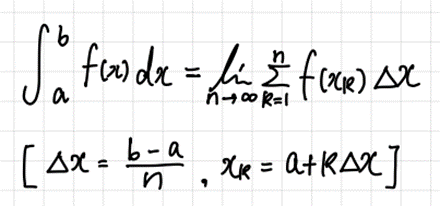 ∫_a^b f(x) dx = lim_{n→∞} Σ_{k=1}^{n} f(x_k) Δx
[ Δx = \frac{b-a}{n} , x_k = a+kΔx ]